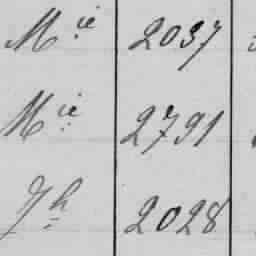 Mie 2037
Mie 2791
Jh 2028